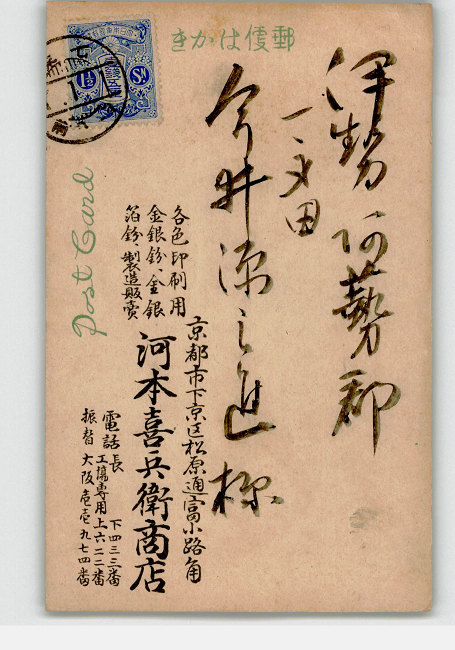 郵便はかき
伊勢河藝郡
一身田
今井源之進様
Post Card
1½ Sn
各色印刷用
金銀粉、金銀
箔粉、製造販賣
京都市下京区松原通富小路角
河本喜兵衛商店
電話長 下四三三番
工場専用上六二二番
振替 大阪 壱九七四番